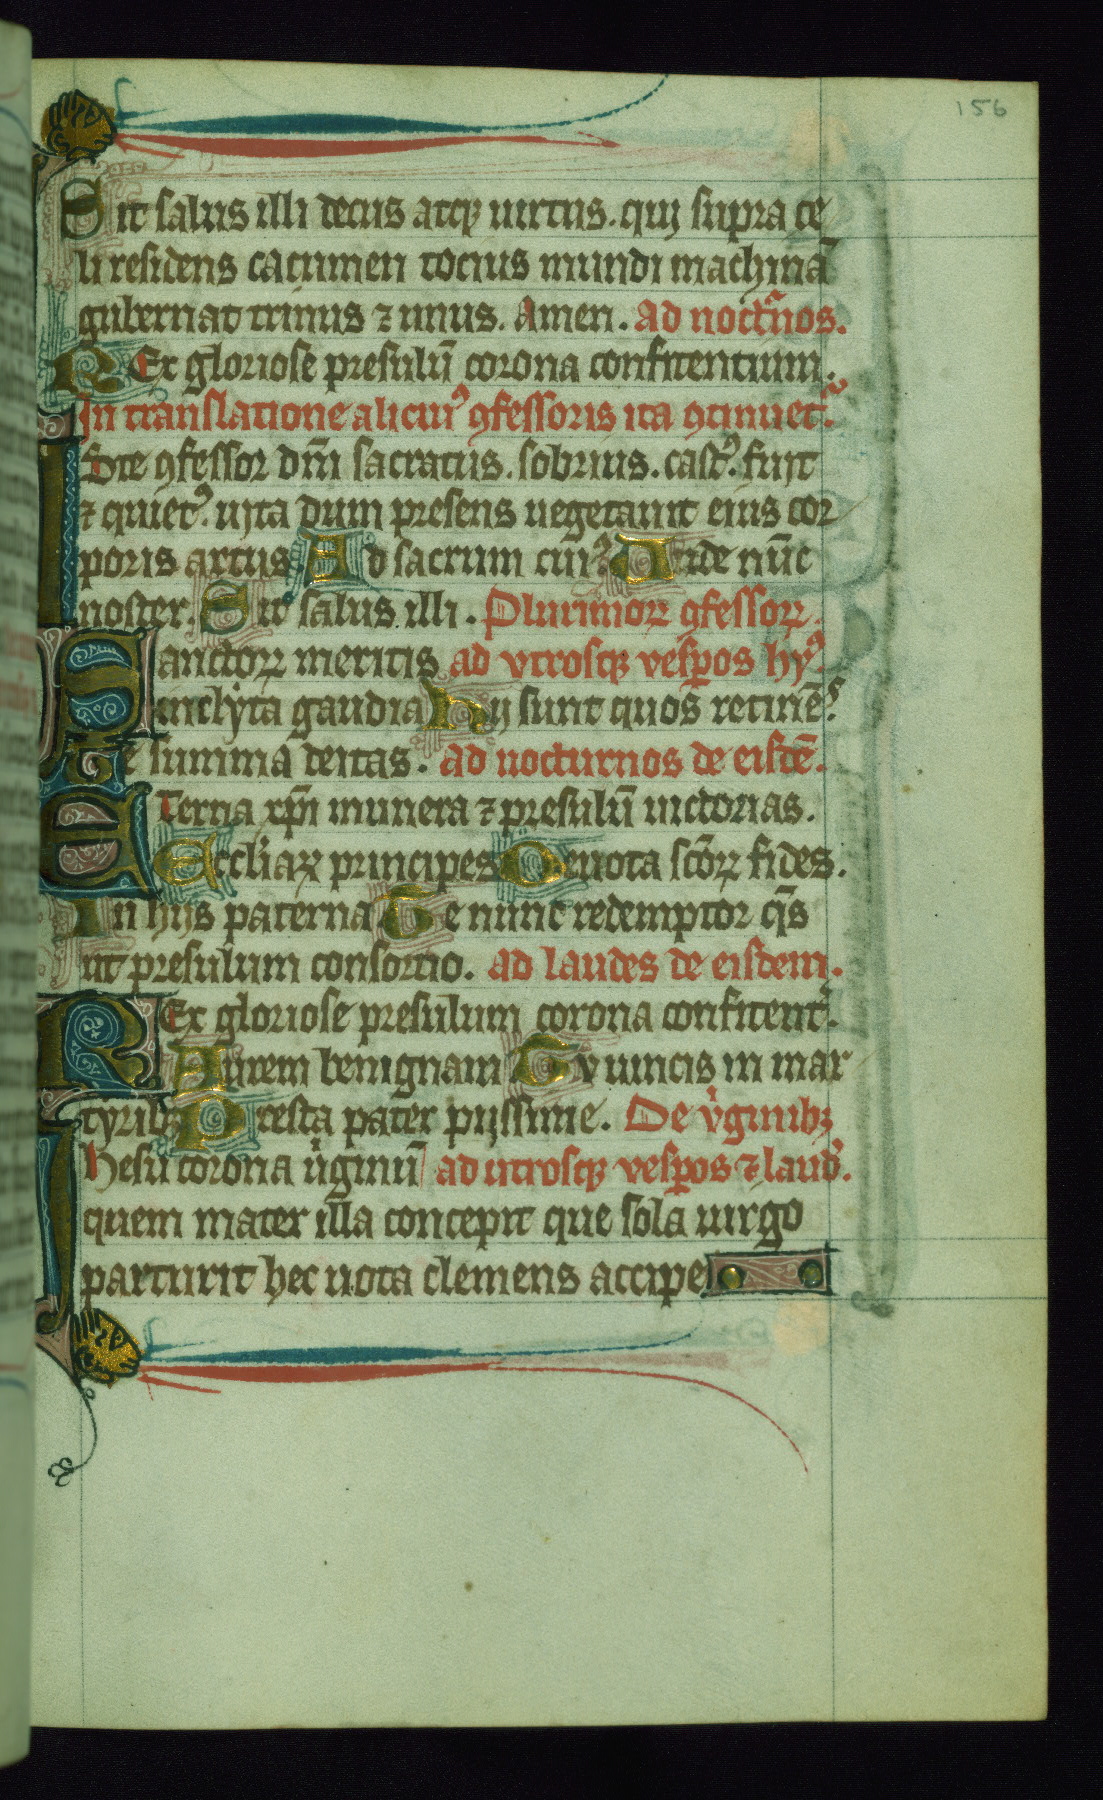 156
Sit salus illi decus atqꝫ uirtus. qui supra ce
li residens cacumen tocius mundi machinā
gubernat trinus ⁊ unus. Amen. Ad noct̄nos.
REx gloriose presulū corona confitentium.
In translatione alicuiꝰ ꝯfessoris ita ꝯtinuet᷑.
Iste ꝯfessor dn̄i sacratus. sobrius. castꝰ. fuit
⁊ quietꝰ. uita dum presens uegetauit eius cor
poris artus Ad sacrum cuiꝰ Unde nūc
noster. Sit salus illi. Plurimoꝝ ꝯfessoꝝ.
Sanctoꝝ meritis ad vtrosqꝫ vesꝑos hyꝰ
inclyta gaudia Hij sunt quos retinēs.
Te summa deitas. ad nocturnos de eisdē.
ETerna xp̄i munera ⁊ presulū uictorias.
Eccl̓iaꝝ principes Deuota sc̄oꝝ fides.
In hijs paterna Te nunc redemptor q̄s
ut presulum consortio. ad laudes de eisdem.
REx gloriose presulum corona confitent᷑.
Aurem benignam Tu uincis in mar
tyribꝫ Presta pater pijssime. De v̓ginibꝫ
Ihesu corona u̓ginū ad utrosqꝫ vesꝑos ⁊ laud̓.
quem mater illa concepit que sola uirgo
parturit hec uota clemens accipe